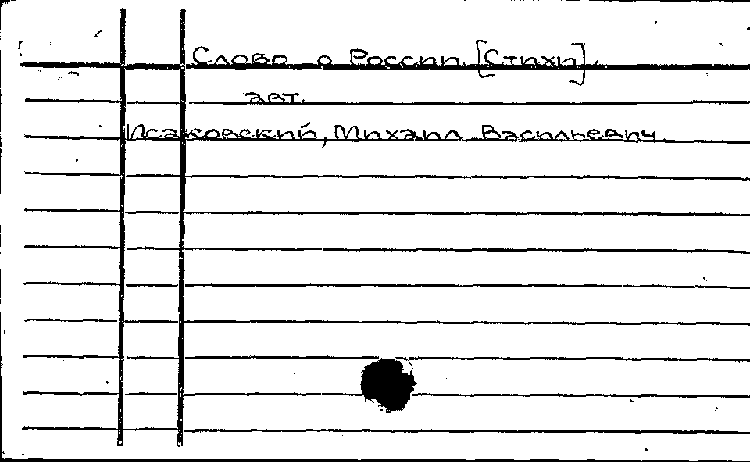 Слово о России. [Стихи].
авт.
Исаковский, Михаил Васильевич.